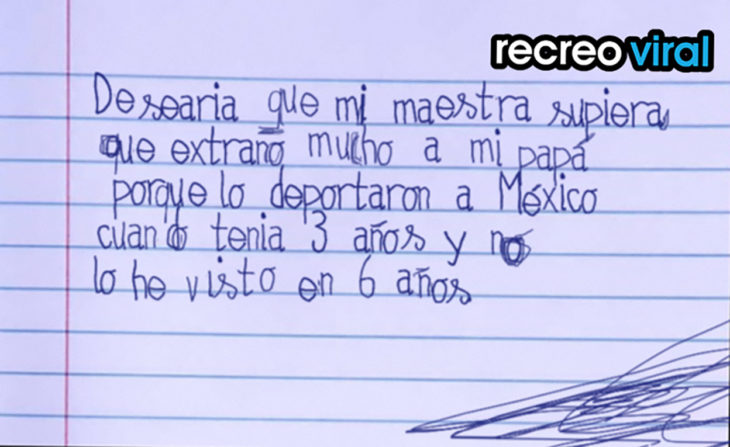 recreoviral
Desearia que mi maestra supiera
que extraño mucho a mi papá
porque lo deportaron a México
cuando tenia 3 años y no
lo he visto en 6 años